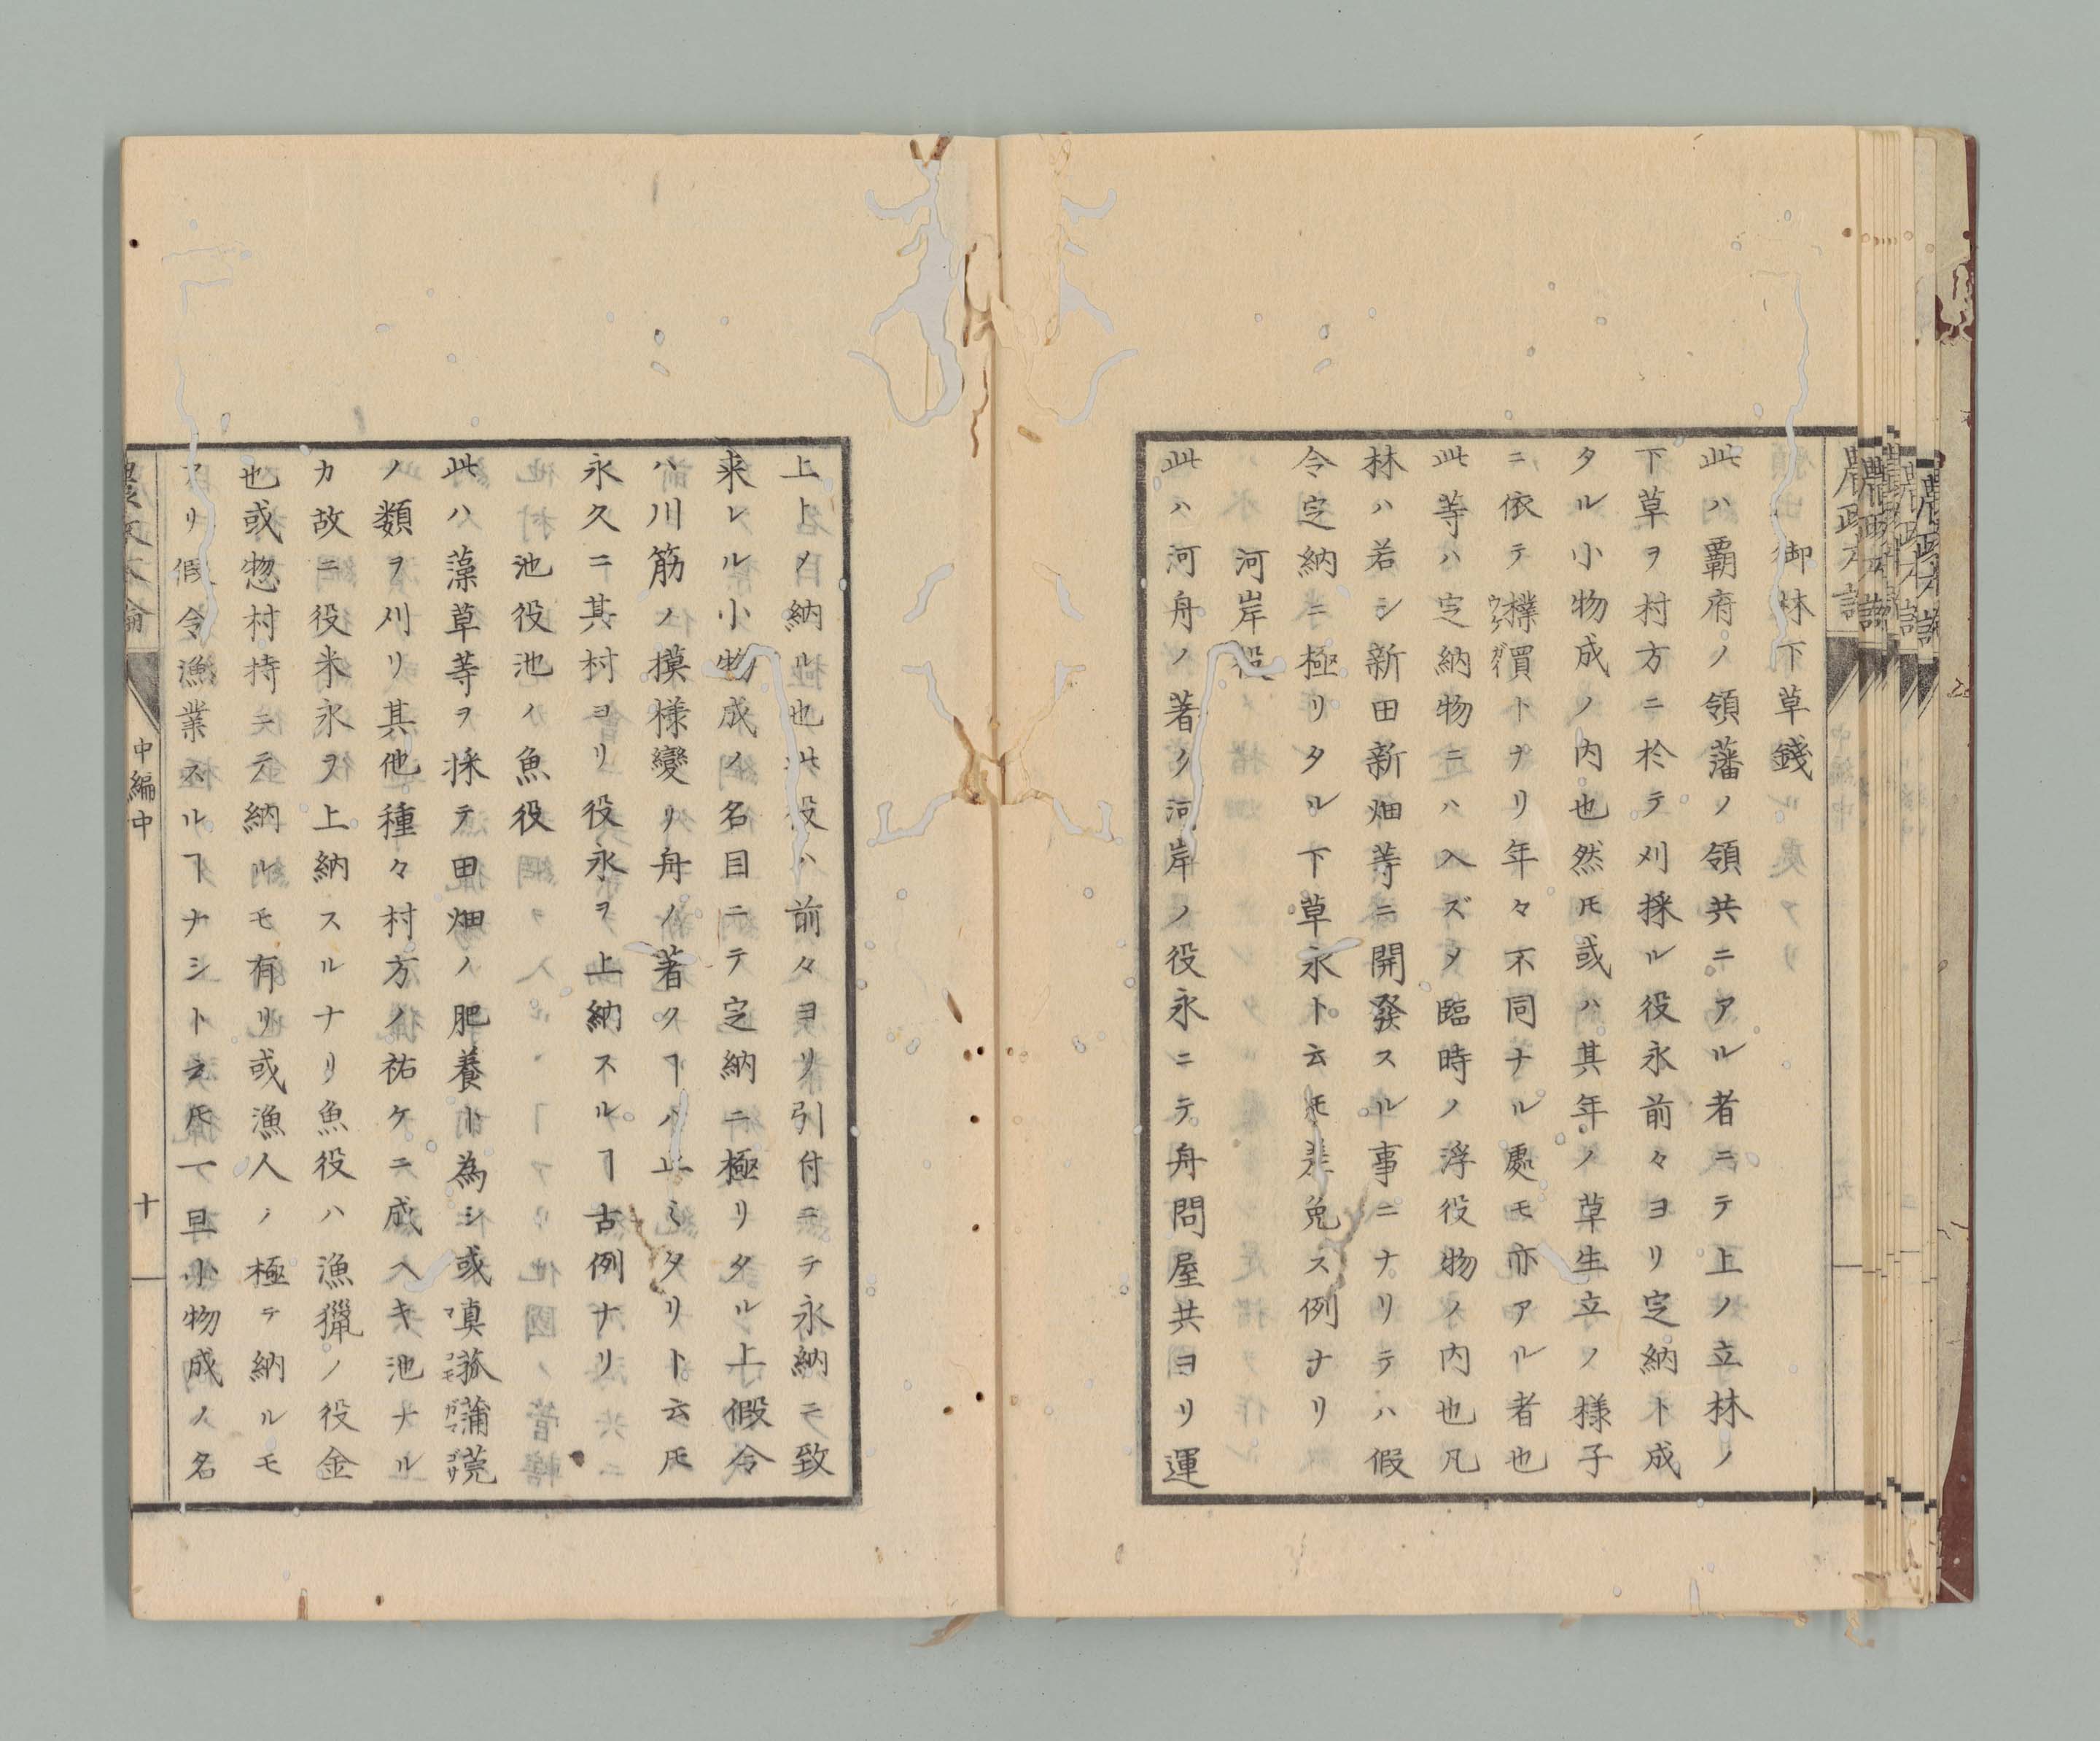 御林下草錢
此ハ覇府ノ領藩ノ領共ニアル者ニテ上ノ立林ノ
下草ヲ村方ニ於テ刈採ル役永前々ヨリ定納ト成
タル小物成ノ内也然𪜈或ハ其年ノ草生立ノ様子
ニ依テ檏買トナリ年々不同ナル處モ亦アル者也
此等ハ定納物ニハ入ズ〆臨時ノ浮役物ノ内也凡
林ハ若シ新田新畑等ニ開發スル事ニナリテハ假
令定納ニ極リタル下草永ト云𪜈差免ス例ナリ
河岸役
此ハ河舟ノ著ク河岸ノ役永ニテ舟問屋共ヨリ運
上トノ納ル也此役ハ前々ヨリ引付ニテ永納ニ致
来レル小物成ノ名目ニテ定納ニ極リタル上假令
ハ川筋ノ摸様變リ舟ノ著クヿハ止ミタリト云𪜈
永久ニ其村ヨリ役永ヲ上納スルヿ古例ナリ
池役池ノ魚役
此ハ藻草等ヲ採テ田畑ノ肥養ト為シ或真菰蒲莞
ノ類ヲ刈リ其他種々村方ノ祐ケニ成ヘキ池ナル
カ故ニ役米永ヲ上納スルナリ魚役ハ漁獵ノ役金
也或惣村持ニテ納ルモ有リ或漁人ノ極テ納ルモ
アリ假令漁業スルヿナシト云𪜈一旦小物成ノ名
中編中
十